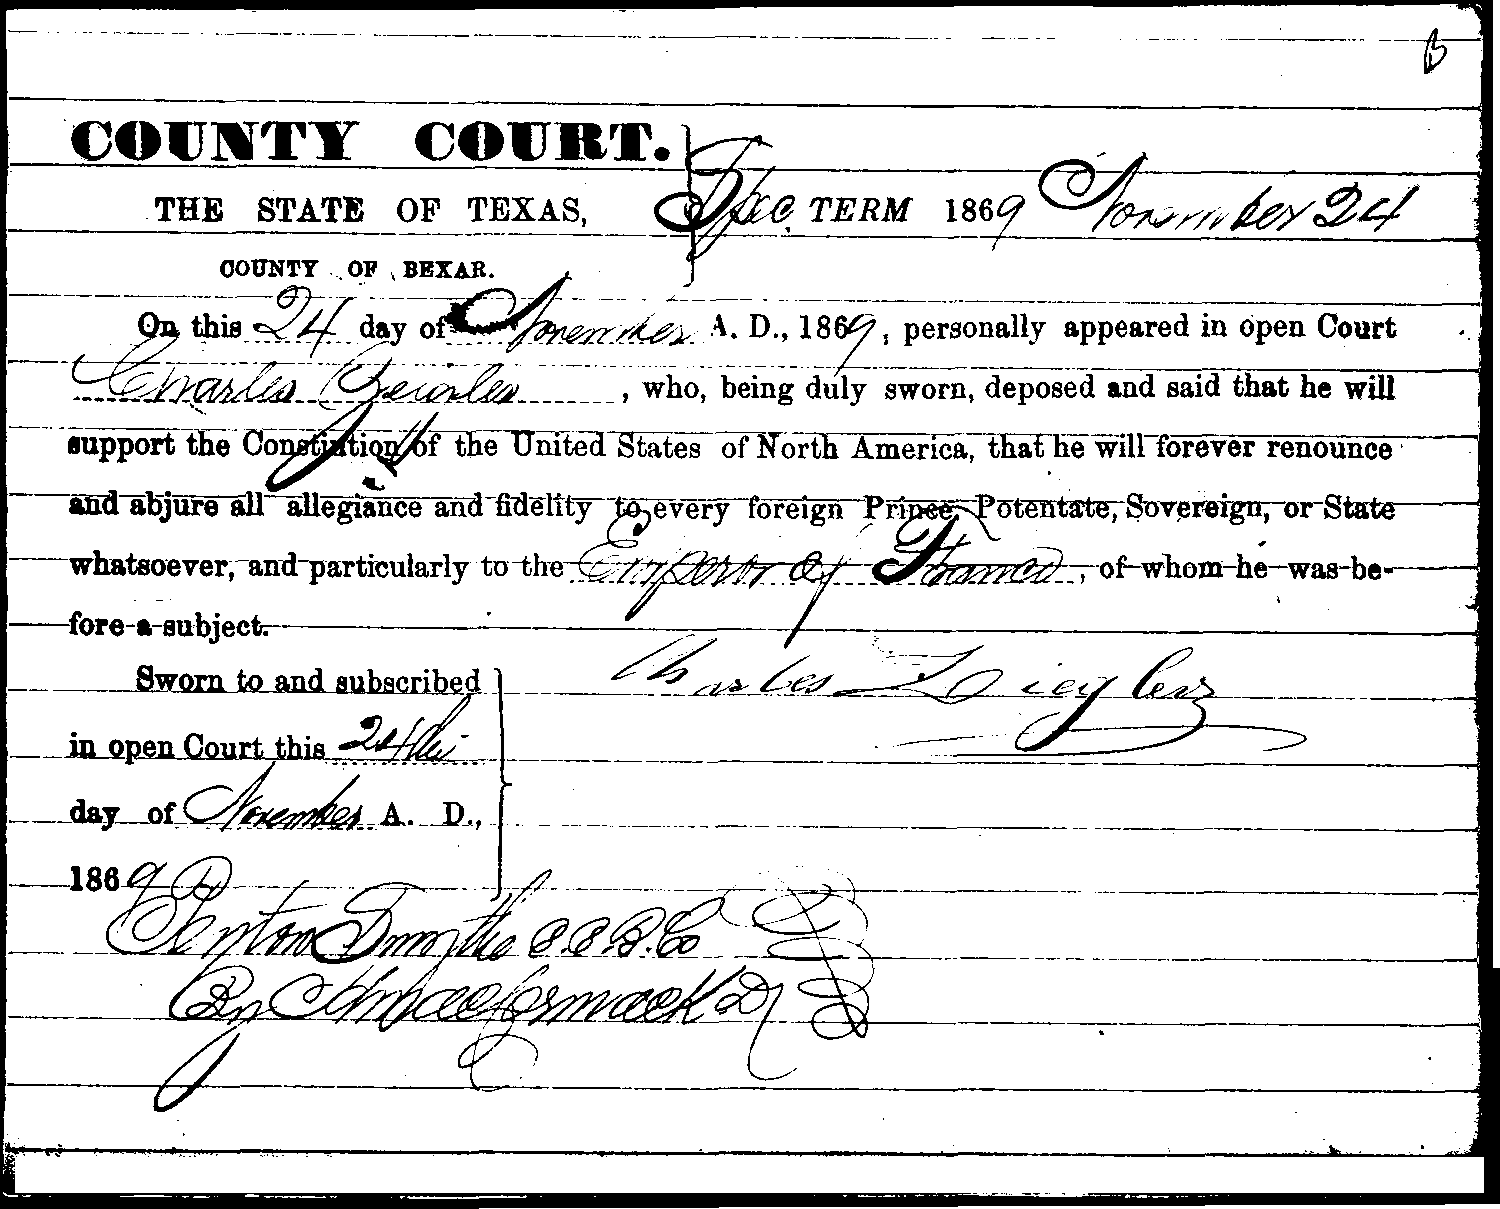 B
COUNTY COURT.
THE STATE OF TEXAS, Spec. TERM 1869 November 24
COUNTY OF BEXAR.
On this 24 day of November A. D., 1869, personally appeared in open Court
Charles , who, being duly sworn, deposed and said that he will
support the Constiution of the United States of North America, that he will forever renounce
and abjure all allegiance and fidelity to every foreign Prince, Potentate, Sovereign, or State
whatsoever, and particularly to the Emperor of France, of whom he was be-
fore a subject.
Charles Ziegler
Sworn to and subscribed
in open Court this 24th
day of November A. D.,
1869
Smythe C.C.B.Co
By